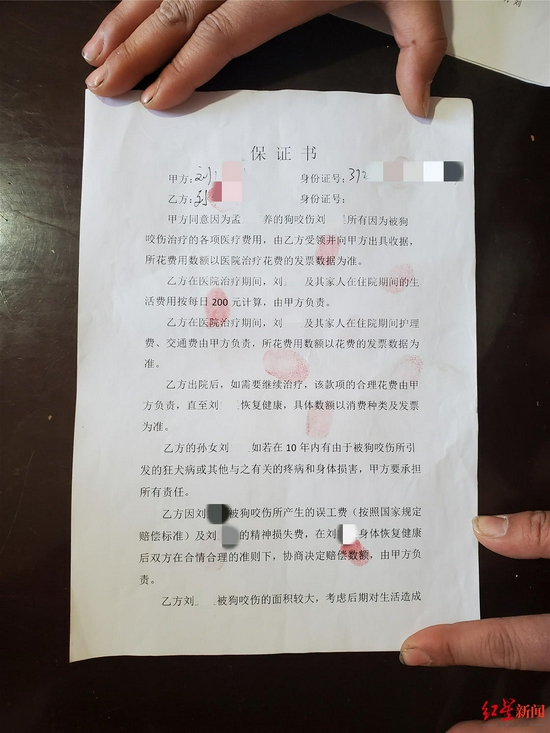 刘
保 证 书
甲方：刘 身份证号：372
乙方：刘 身份证号：
甲方同意因为孟 养的狗咬伤刘 所有因为被狗
咬伤治疗的各项医疗费用，由乙方受领并向甲方出具收据，
所花费用数额以医院治疗花费的发票数据为准。
乙方在医院治疗期间，刘 及其家人在住院期间的生
活费用按每日 200 元计算，由甲方负责。
乙方在医院治疗期间，刘 及其家人在住院期间护理
费、交通费由甲方负责，所花费用数额以花费的发票数据为
准。
乙方出院后，如需要继续治疗，该款项的合理花费由甲
方负责，直至刘 恢复健康，具体数额以消费种类及发票
为准。
乙方的孙女刘 如若在 10 年内有由于被狗咬伤所引
发的狂犬病或其他与之有关的疼病和身体损害，甲方要承担
所有责任。
乙方因刘 被狗咬伤所产生的误工费（按照国家规定
赔偿标准）及刘 的精神损失费，在刘 身体恢复健康
后双方在合情合理的准则下，协商决定赔偿数额，由甲方负
责。
乙方刘 被狗咬伤的面积较大，考虑后期对生活造成
红星新闻